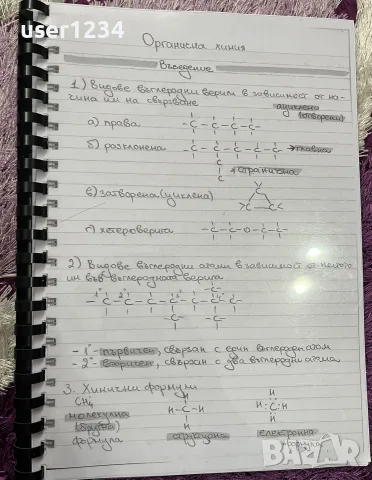 user1234
Органична химия
Въведение
1) Видове въглеродни вериги в зависимост от на-
чина им на свързване
ациклена
(отворени)
а) права
-C-C-C-C-
б) разклонена
-C-C-C-C-C- → главна
C → странична
C
в) затворена (циклена)
г) хетероверига
-C-C-O-C-C-
2) Видове въглеродни атоми в зависимост от
им във въглеродната верига
- 1° - първичен, свързан с един въглероден атом
- 2° - вторичен, свързан с два въглеродни атома
3. Химични формули
CH4
молекулна
(брутна)
формула
H
H-C-H
H
структурна
H
H:C:H
H
електронна
формула
BAZAR